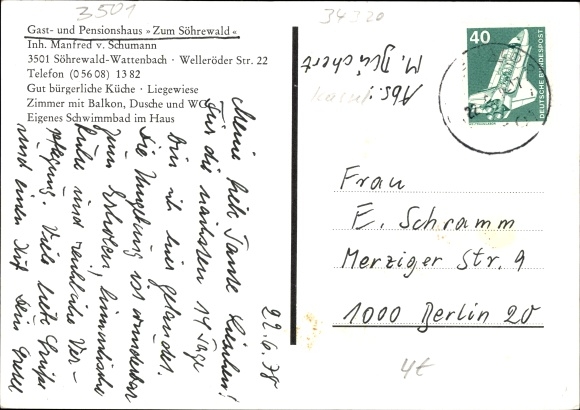 3501
34320
Gast- und Pensionshaus »Zum Söhrewald«
Inh. Manfred v. Schumann
3501 Söhrewald-Wattenbach · Welleröder Str. 22
Telefon (05608) 1382
Gut bürgerliche Küche · Liegewiese
Zimmer mit Balkon, Dusche und WC
Eigenes Schwimmbad im Haus
40
DEUTSCHE BUNDESPOST
Abs.:
M. Blüchert
Kassel
22.6.78
Meine liebe Tante Lieschen!
Für die nächsten 14 Tage
bin ich hier gelandet.
Die Umgebung ist wunderbar
zum Erholen, himmlische
Ruhe und reichliche Ver-
pflegung. Viele liebe Grüße
und einen Kuß Dein
Frau
E. Schramm
Merziger Str. 9
1000 Berlin 20
4t